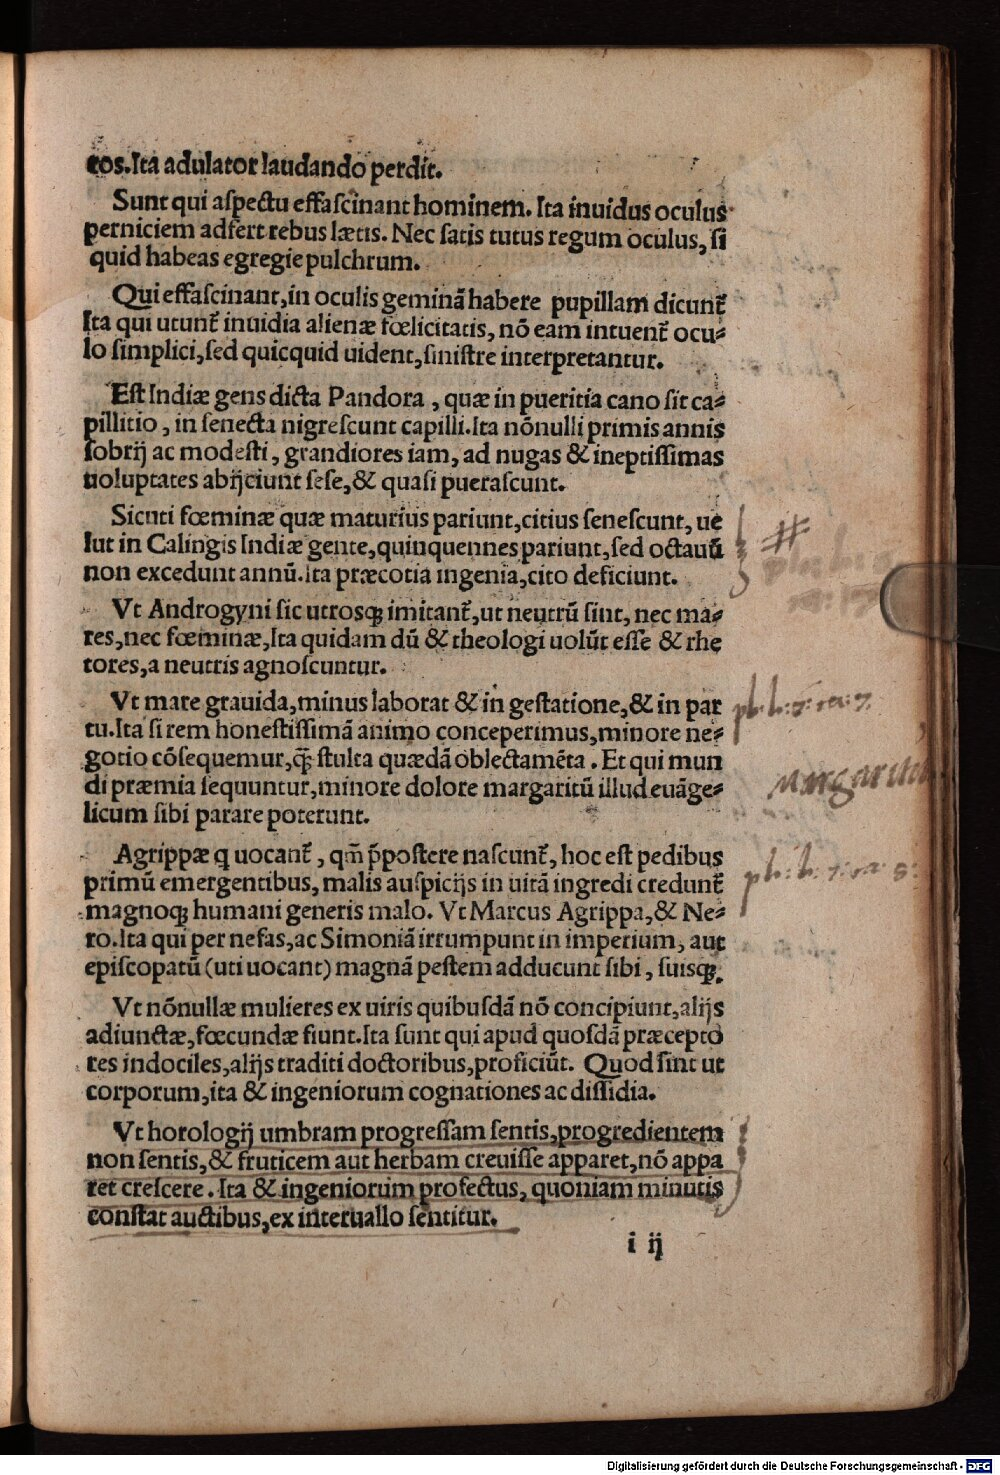 tos.Ita adulator laudando perdit.
Sunt qui aſpectu effaſcinant hominem. Ita inuidus oculus
perniciem adfert rebus lætis. Nec ſatis tutus regum oculus, ſi
quid habeas egregie pulchrum.
Qui effaſcinant,in oculis geminā habere pupillam dicunt̃
Ita qui utunt̃ inuidia alienæ fœlicitatis, nō eam intuent̃ ocu⸗
lo ſimplici,ſed quicquid uident,ſiniſtre interpretantur.
Eſt Indiæ gens dicta Pandora , quæ in pueritia cano ſit ca⸗
pillitio , in ſenecta nigreſcunt capilli.Ita nōnulli primis annis
ſobrij ac modeſti , grandiores iam, ad nugas & ineptiſſimas
uoluptates abijciunt ſeſe,& quaſi pueraſcunt.
Sicuti fœminæ quæ maturius pariunt,citius ſeneſcunt, ue
lut in Calingis Indiæ gente,quinquennes pariunt,ſed octauū
non excedunt annū.Ita præcocia ingenia,cito deficiunt.
Vt Androgyni ſic utroſqꝫ imitant̃,ut neutrū ſint, nec ma⸗
res,nec fœminæ,Ita quidam dū & theologi uolūt eſſe & rhe
tores,a neutris agnoſcuntur.
Vt mare grauida,minus laborat & in geſtatione,& in par
tu.Ita ſi rem honeſtiſſimā animo conceperimus,minore ne⸗
gotio cōſequemur,q̃ꝫ ſtulta quædā oblectamēta . Et qui mun
di præmia ſequuntur,minore dolore margaritū illud euāge⸗
licum ſibi parare poterunt.
Agrippæ q uocant̃ , qm̄ p̄poſtere naſcunt̃, hoc eſt pedibus
primū emergentibus, malis auſpicijs in uitā ingredi credunt̃
magnoqꝫ humani generis malo. Vt Marcus Agrippa,& Ne⸗
ro.Ita qui per nefas,ac Simoniā irrumpunt in imperium, aut
epiſcopatū (uti uocant) magnā peſtem adducunt ſibi , ſuiſqꝫ.
Vt nōnullæ mulieres ex uiris quibuſdā nō concipiunt,alijs
adiunctæ,fœcundæ fiunt.Ita ſunt qui apud quoſdā præcepto
res indociles,alijs traditi doctoribus,proficiūt. Quod ſint ut
corporum,ita & ingeniorum cognationes ac diſſidia.
Vt horologij umbram progreſſam ſentis,progredientem
non ſentis,& fruticem aut herbam creuiſſe apparet,nō appa
ret creſcere . Ita & ingeniorum profectus, quoniam minutis
conſtat auctibus,ex interuallo ſentitur.
i ij
Digitalisierung gefördert durch die Deutsche Forschungsgemeinschaft - DFG